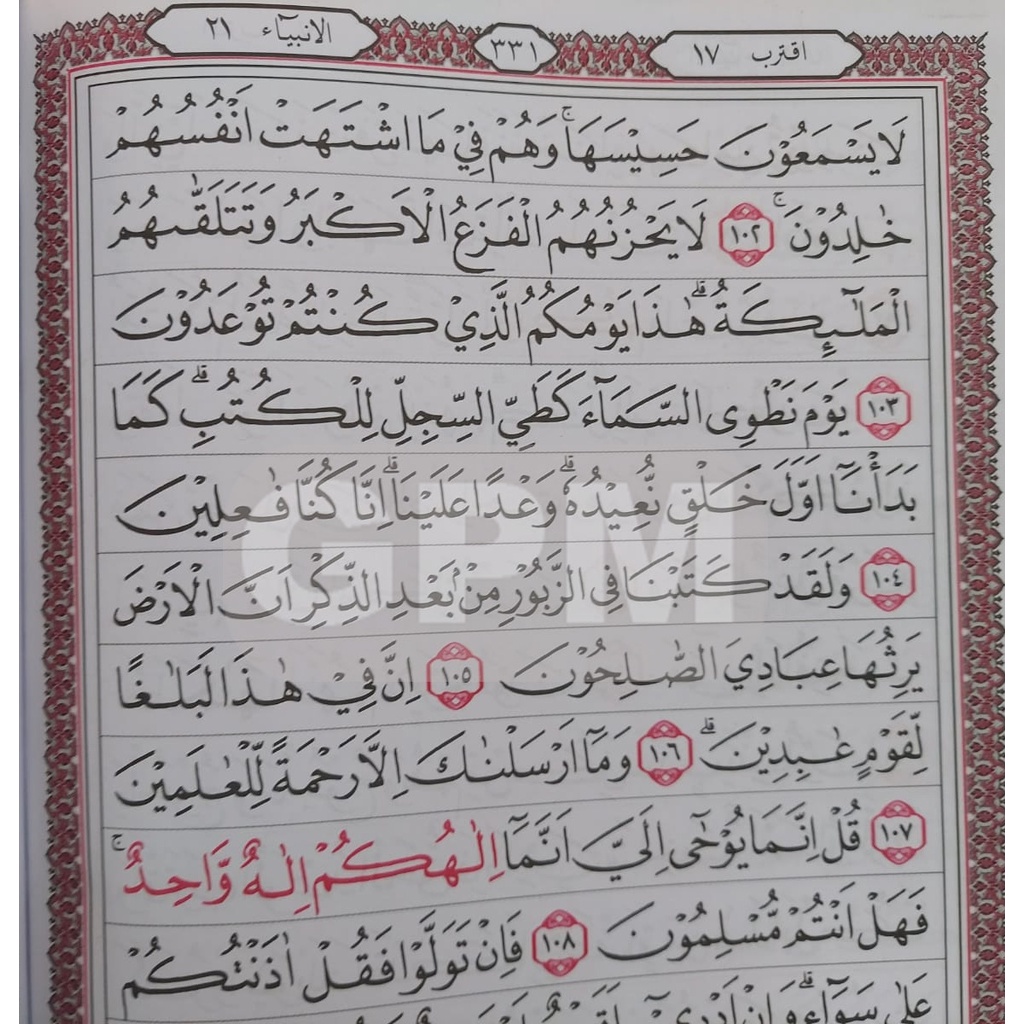 اقترب ١٧
٣٣١
الانبيۤاء ٢١
لَا يَسْمَعُوْنَ حَسِيْسَهَاۚ وَهُمْ فِيْ مَا اشْتَهَتْ اَنْفُسُهُمْ
خٰلِدُوْنَۚ ١٠٢ لَا يَحْزُنُهُمُ الْفَزَعُ الْاَكْبَرُ وَتَتَلَقّٰىهُمُ
الْمَلٰۤىِٕكَةُۗ هٰذَا يَوْمُكُمُ الَّذِيْ كُنْتُمْ تُوْعَدُوْنَ
١٠٣ يَوْمَ نَطْوِى السَّمَاۤءَ كَطَيِّ السِّجِلِّ لِلْكُتُبِۗ كَمَا
بَدَأْنَآ اَوَّلَ خَلْقٍ نُّعِيْدُهٗۗ وَعْدًا عَلَيْنَاۗ اِنَّا كُنَّا فٰعِلِيْنَ
١٠٤ وَلَقَدْ كَتَبْنَا فِى الزَّبُوْرِ مِنْۢ بَعْدِ الذِّكْرِ اَنَّ الْاَرْضَ
يَرِثُهَا عِبَادِيَ الصّٰلِحُوْنَ ١٠٥ اِنَّ فِيْ هٰذَا لَبَلٰغًا
لِّقَوْمٍ عٰبِدِيْنَۗ ١٠٦ وَمَآ اَرْسَلْنٰكَ اِلَّا رَحْمَةً لِّلْعٰلَمِيْنَ
١٠٧ قُلْ اِنَّمَا يُوْحٰٓى اِلَيَّ اَنَّمَآ اِلٰهُكُمْ اِلٰهٌ وَّاحِدٌۚ
فَهَلْ اَنْتُمْ مُّسْلِمُوْنَ ١٠٨ فَاِنْ تَوَلَّوْا فَقُلْ اٰذَنْتُكُمْ
عَلٰى سَوَاۤءٍۗ وَاِنْ اَدْرِيْٓ
GPM